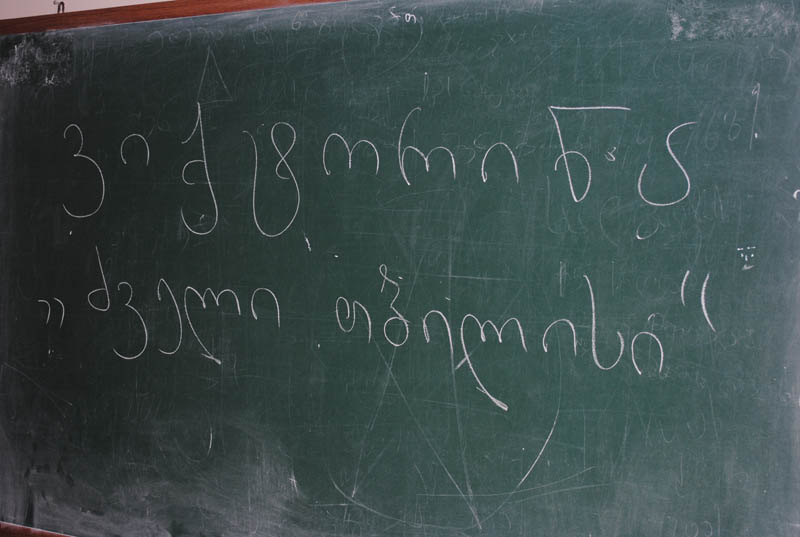 ვიქტორინა
„ძველი თბილისი“